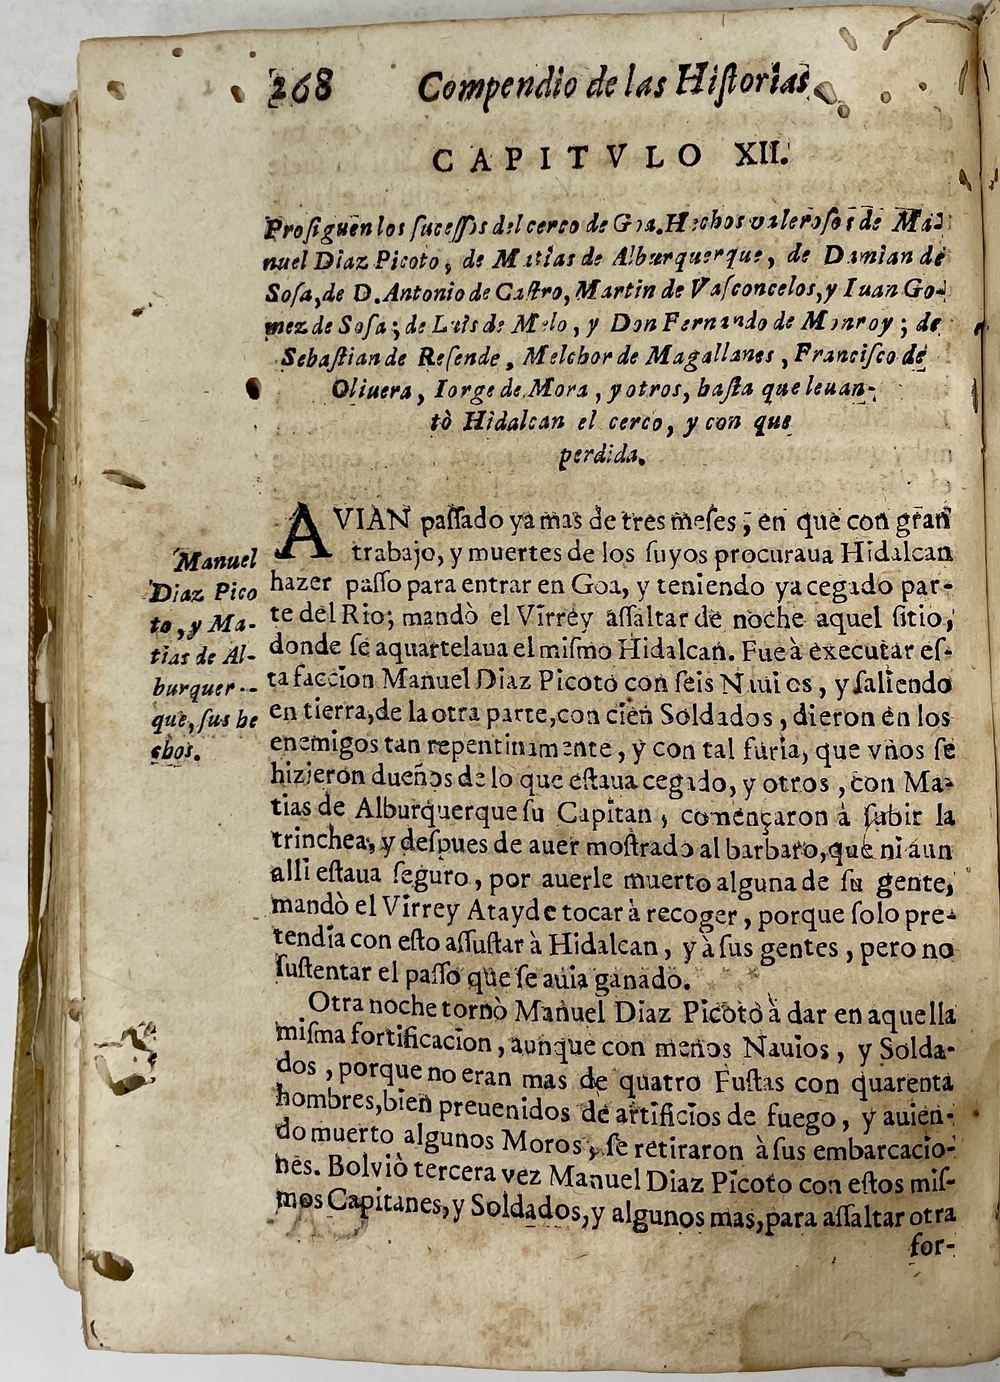 268 Compendio de las Hiſtorias
CAPITVLO XII.
Proſiguen los ſuceſſos del cerco de Goa. Hechos valeroſos de Ma-
nuel Diaz Picoto, de Matias de Alburquerque, de Damian de
Soſa, de D. Antonio de Caſtro, Martin de Vaſconcelos, y Iuan Go-
mez de Soſa; de Luis de Melo, y Don Fernando de Monroy; de
Sebaſtian de Reſende, Melchor de Magallanes, Franciſco de
Oliuera, Iorge de Mora, y otros, haſta que leuan-
tò Hidalcan el cerco, y con que
perdida.
AVIAN paſſado ya mas de tres meſes, en que con gran
trabajo, y muertes de los ſuyos procuraua Hidalcan
hazer paſſo para entrar en Goa, y teniendo ya cegado par-
te del Rio; mandò el Virrey aſſaltar de noche aquel ſitio,
donde ſe aquartelaua el miſmo Hidalcan. Fue à executar eſ-
ta faccion Manuel Diaz Picoto con ſeis Nauios, y ſaliendo
en tierra, de la otra parte, con cien Soldados, dieron en los
enemigos tan repentinamente, y con tal furia, que vnos ſe
hizieron dueños de lo que eſtaua cegado, y otros, con Ma-
tias de Alburquerque ſu Capitan, començaron à ſubir la
trinchea, y deſpues de auer moſtrado al barbaro, que ni aun
alli eſtaua ſeguro, por auerle muerto alguna de ſu gente,
mandò el Virrey Atayde tocar à recoger, porque ſolo pre-
tendia con eſto aſſuſtar à Hidalcan, y à ſus gentes, pero no
ſuſtentar el paſſo que ſe auia ganado.
Otra noche tornò Manuel Diaz Picoto à dar en aquella
miſma fortificacion, aunque con menos Nauios, y Solda-
dos, porque no eran mas de quatro Fuſtas con quarenta
hombres, bien preuenidos de artificios de fuego, y auien-
do muerto algunos Moros, ſe retiraron à ſus embarcacio-
nes. Bolviò tercera vez Manuel Diaz Picoto con eſtos miſ-
mos Capitanes, y Soldados, y algunos mas, para aſſaltar otra
for-
Manuel
Diaz Pico
to, y Ma-
tias de Al-
burquer-
que, ſus he
chos.